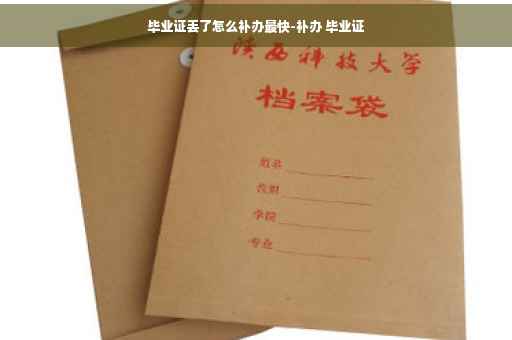 毕业证丢了怎么补办最快-补办 毕业证
陕西科技大学
档案袋
学院
专业